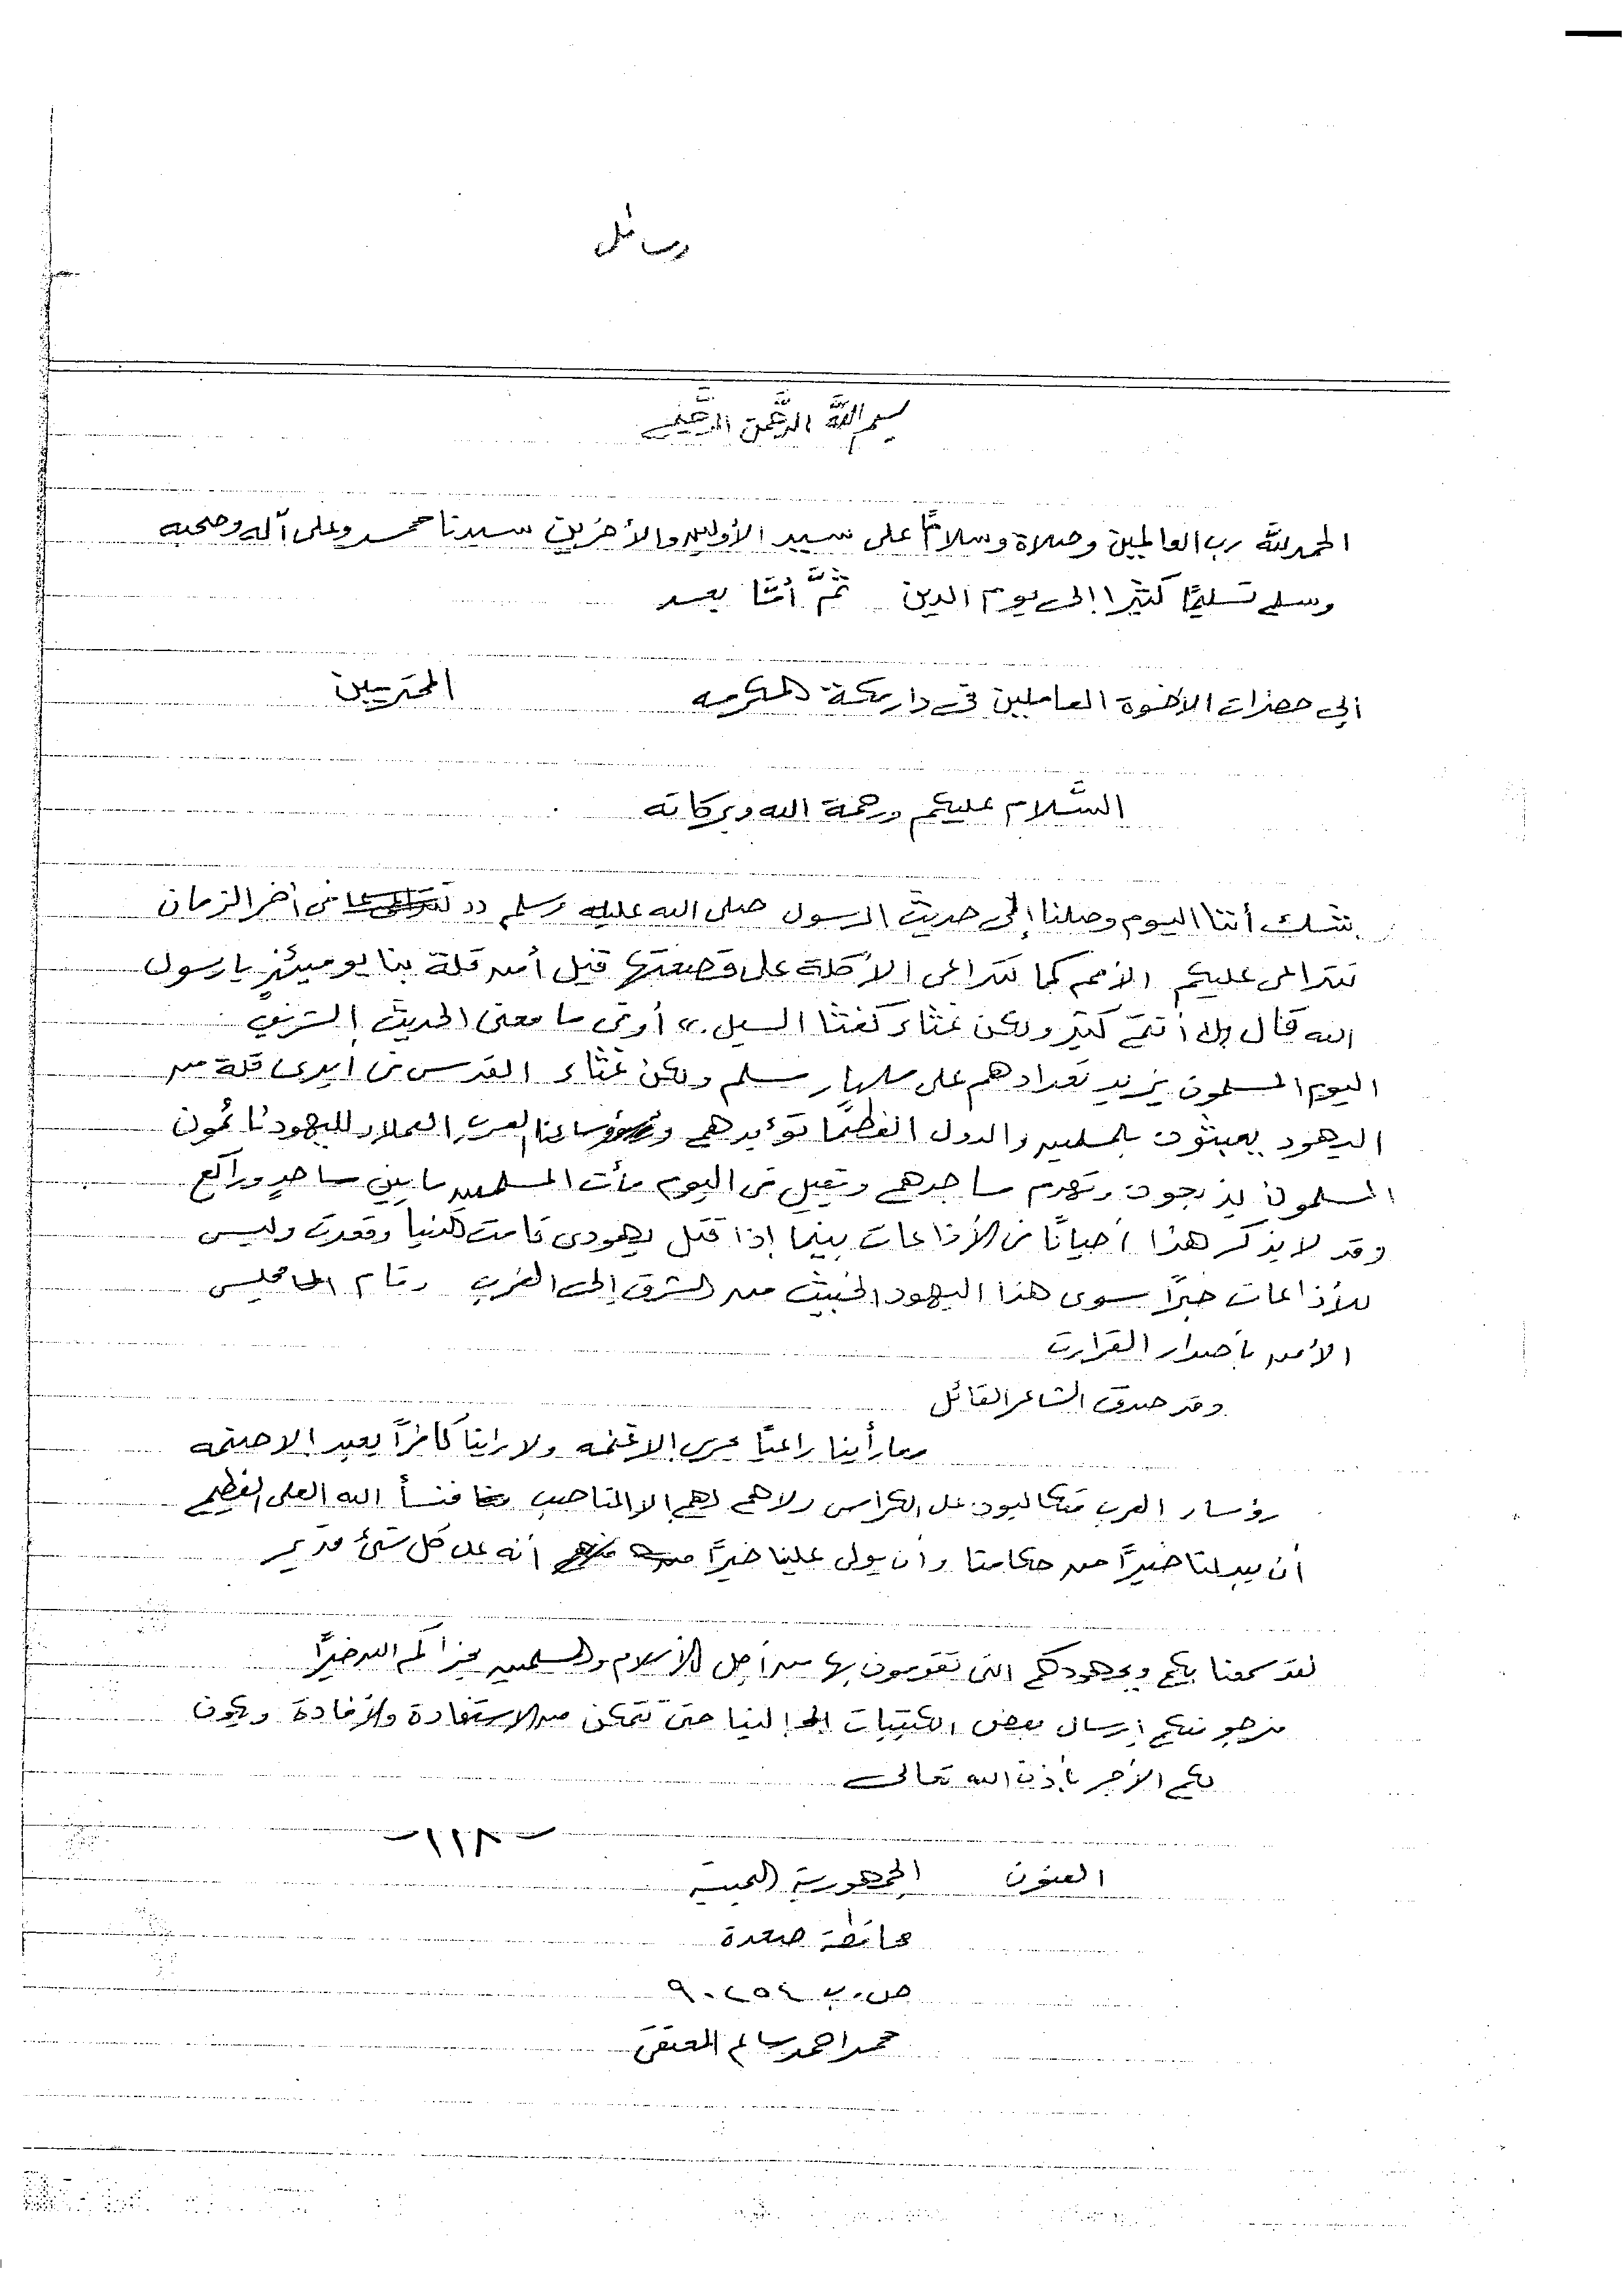 رسائل
بسم اللَّه الرَّحمن الرَّحيم
الحمدلله رب العالمين وصلاة وسلامًا على سيد الأولين والأخرين سيدنا محمد وعلى آله وصحبه
وسلم تسليمًا كثيرا إلى يوم الدين ثمَّ أمَّا بعد
إلى حضرات الأخوة العاملين في دار مكة المكرمه المحترمين
السَّلام عليكم ورحمة الله وبركاته
بشك أننا اليوم وصلنا إلى حديث الرسول صلى الله عليه وسلم (( في أخر الزمان
تتداعى عليكم الأمم كما تتداعى الأكلة على قصعتها قيل أمن قلة بنا يومئذٍ يا رسول
الله قال أنتم كثير ولكن غثاء كغثا السيل )) أوتى ما معنى الحديث الشريف
اليوم المسلمون يزيد تعدادهم على مليار مسلم ولكن غثاء القدس في ايدي قلة من
اليهود يعبثون بالمسلمين والدول العظمًا تؤيدهم ورؤساءنا العرب العملاء لليهود نائمون
المسلمون يذبحون وتهدم مساجدهم ويقتل في اليوم مأت المسلمين ما بين ساجدٍ وراكع
وقد لا يذكر هذا أحيانًا في الأذاعات بينما إذا قتل يهودي قامت الدنيا وقعدت وليس
للأذاعات خبرًا سوى هذا اليهود الخبيث من الشرق إلى الغرب وقام مجلس
الأمن بأصدار القرارت
وقد صدق الشاعر القائل
وما رأينا راعيًا عربي الا غنمه ولا راينا كافرًا يعبد الا صنمه
رؤساء العرب متكالبون على الكراسي ولا هم لهم الا المناصب فنسأ الله العلي العظيم
أن يبدلنا خيرًا من حكامنا وأن يولى علينا خيرًا منهم أنه على كل شئ قدير
لقد سمعنا بكم وبجهودكم التي تقومون بها من أجل الأسلام والمسلمين فجزاكم الله خيرًا
نرجو منكم إرسال بعض الكتيبات إلينا حتى نتمكن من الاستفادة والأفادة ويكون
لكم الأجر بأذن الله تعالى
-١١٨-
العنون الجمهورية اليمنية
محافظة صعدة
ص.ب ٩٠٢٥٤
محمد احمد سالم المعنقى